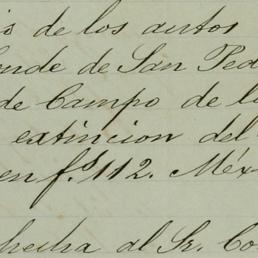 s de los autos
onde de San Ped
de Campo de l
extincion del
en f.s 112. Méx
hecha al Sr. Co